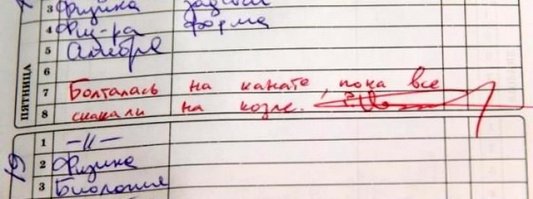 3 Физика задачи
4 Физ-ра форма
5 Алгебра
6
7 Болталась на канате, пока все
8 скакали на козле.
ПЯТНИЦА
1 -||-
2 Физика
3 Биология